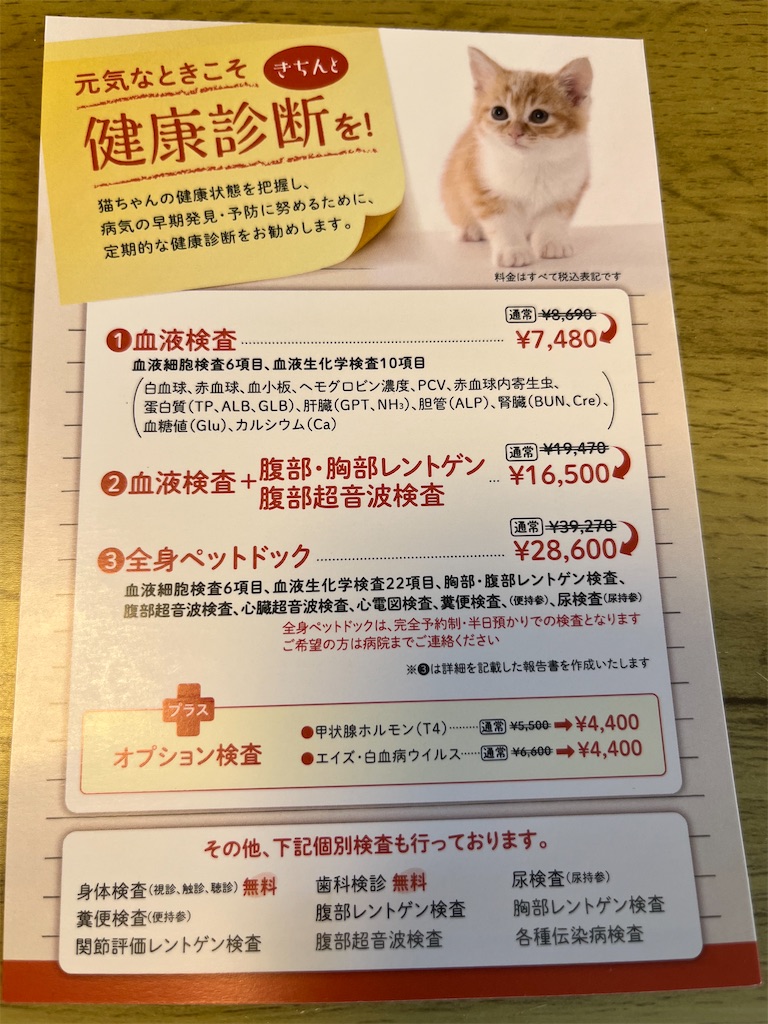 元気なときこそ きちんと
健康診断を!
猫ちゃんの健康状態を把握し、
病気の早期発見・予防に努めるために、
定期的な健康診断をお勧めします。
料金はすべて税込表記です
通常 ¥8,690
❶血液検査 ¥7,480
血液細胞検査6項目、血液生化学検査10項目
(白血球、赤血球、血小板、ヘモグロビン濃度、PCV、赤血球内寄生虫、
蛋白質(TP、ALB、GLB)、肝臓(GPT、NH₃)、胆管(ALP)、腎臓(BUN、Cre)、
血糖値(Glu)、カルシウム(Ca))
通常 ¥19,470
❷血液検査+腹部・胸部レントゲン
腹部超音波検査 … ¥16,500
通常 ¥39,270
❸全身ペットドック ¥28,600
血液細胞検査6項目、血液生化学検査22項目、胸部・腹部レントゲン検査、
腹部超音波検査、心臓超音波検査、心電図検査、糞便検査、(便持参)、尿検査(尿持参)
全身ペットドックは、完全予約制・半日預かりでの検査となります
ご希望の方は病院までご連絡ください
※❸は詳細を記載した報告書を作成いたします
プラス
オプション検査
●甲状腺ホルモン(T4)……… 通常 ¥5,500 ➡¥4,400
●エイズ・白血病ウイルス…… 通常 ¥6,600 ➡¥4,400
その他、下記個別検査も行っております。
身体検査(視診、触診、聴診) 無料 歯科検診 無料 尿検査(尿持参)
糞便検査(便持参) 腹部レントゲン検査 胸部レントゲン検査
関節評価レントゲン検査 腹部超音波検査 各種伝染病検査